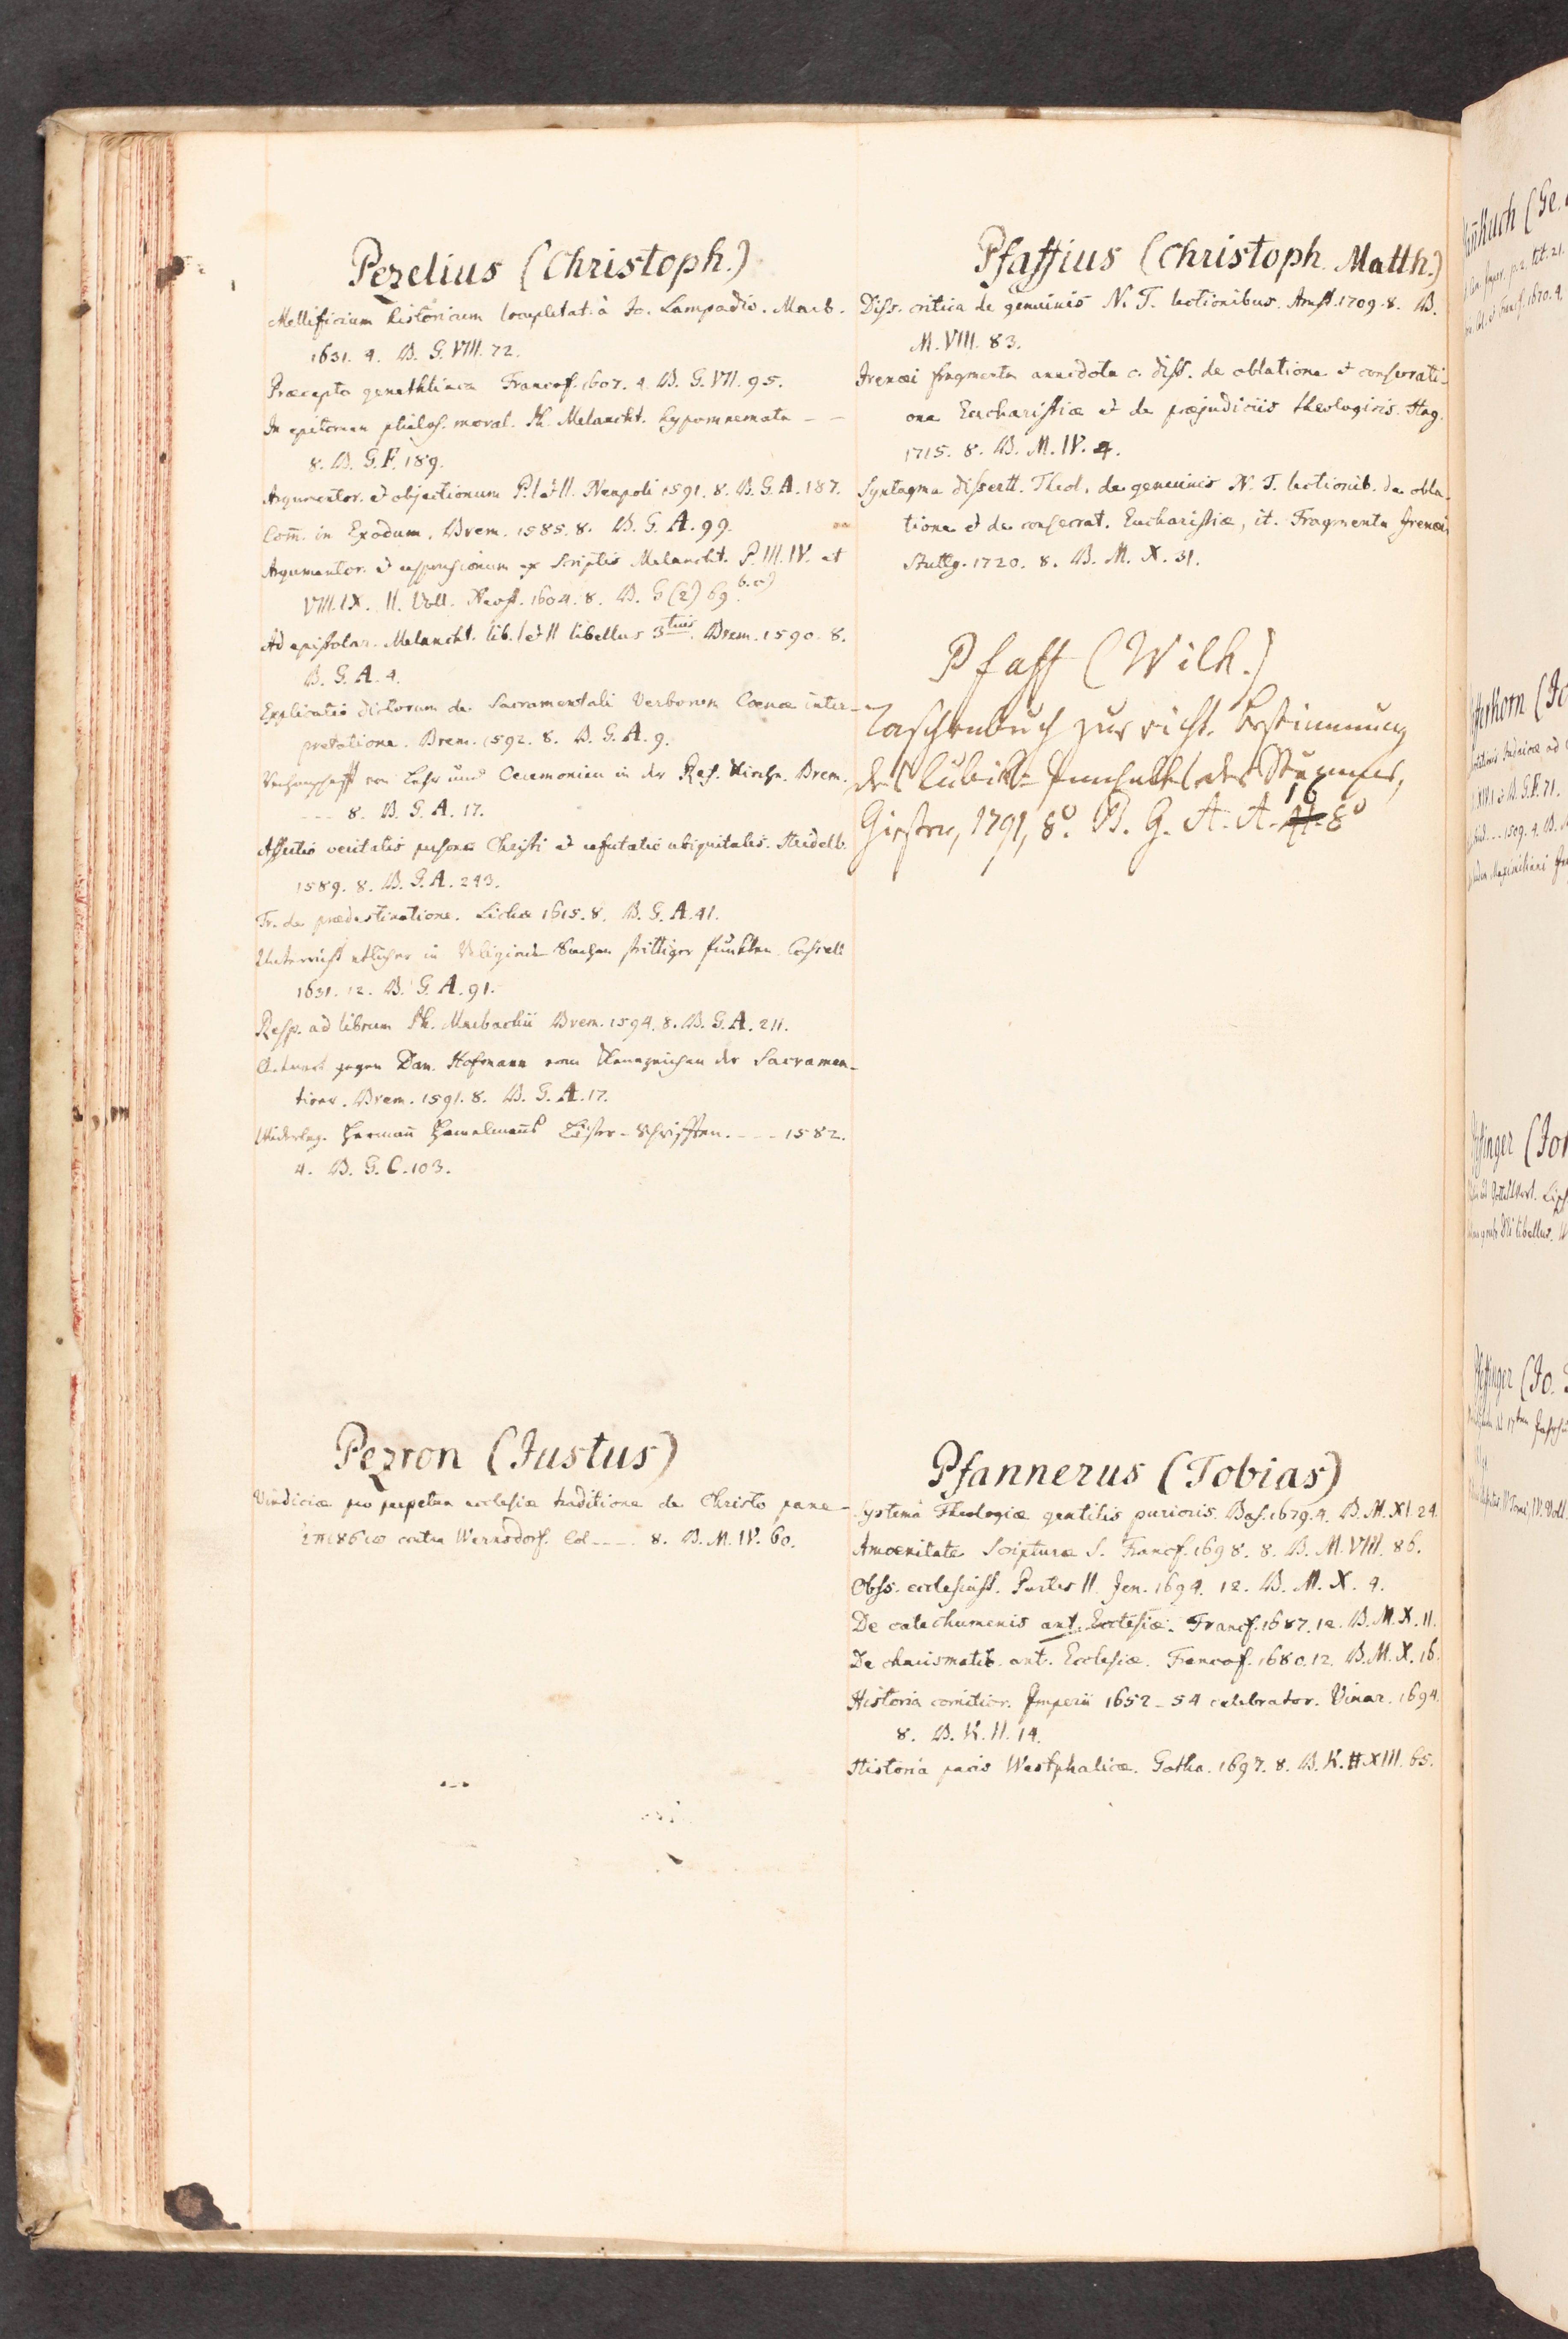 Pezelius (Christoph.)
Mellificium historicum locupletat. à Jo. Lampadio. Marb.
1631. 4. B. G. VIII. 72.
Præcepta genethliaca Francof. 1607. 4. B. G. VII. 95.
In epitomen philos. moral. Ph. Melancht. hypomnemata – –
8. B. G. F. 189.
Argumentor. et objectionum P. I et II. Neapoli 1591. 8. B. G. A. 187.
Com̅. in Exodum. Brem. 1585. 8. B. G. A. 99.
Argumentor. et responsionum ex Scriptis Melancht. P. III. IV. et
VIII. IX. II. Voll. Neost. 1604. 8. B. G (2) 69. b. c)
Ad epistolar. Melancht. lib. I et II libellus 3tius. Brem. 1590. 8.
B. G. A. 4.
Explicatio dictorum de Sacramentali Verborum Cœnæ inter-
pretatione. Brem. 1592. 8. B. G. A. 9.
von Lehr und Ceremonien in der Ref. Kirche. Brem.
--- 8. B. G. A. 17.
Assertio veritatis personæ Christi et refutatio ubiquitatis. Heidelb.
1589. 8. B. G. A. 243.
Tr. de prædestinatione. Lichæ 1615. 8. B. G. A. 41.
Unterricht etlicher in Religions-Sachen strittiger Punkten. Cassell
1631. 12. B. G. A. 91.
Resp. ad librum Ph. Marbachii Brem. 1594. 8. B. G. A. 211.
Antwort gegen Dan. Hofmann vom Kennzeichen der Sacramen-
tierer. Brem. 1591. 8. B. G. A. 17.
Widerleg. Herman̅ Hamelman̅s Läster-Schrifften. --- 1582.
4. B. G. C. 103.
Pezron (Justus)
Vindiciæ pro perpetua ecclesiæ traditione de Christo pane
contra Wernsdorf. Col ---. 8. B. M. IV. 60.
Pfaffius (Christoph. Matth.)
Diss. critica de genuinis N. T. lectionibus. Amst. 1709. 8. B.
M. VIII. 83.
Irenæi fragmenta anecdota c. diss. de oblatione et consecrati-
one Eucharistiæ et de præjudiciis theologicis. Hag.
1715. 8. B. M. IV. 4.
Syntagma dissertt. Theol. de genuinis N. T. lectionib. de obla-
tione et de consecrat. Eucharistiæ, it. Fragmenta Irenæi
Stuttg. 1720. 8. B. M. X. 31.
Pfaff (Wilh.)
Taschenbuch zur richt. Bestimmung
des Cubik-Innhalts der Stämme,
Giessen, 1791, 8°. B. G. A. A. 16 8°
Pfannerus (Tobias)
Systema Theologiæ gentilis purioris. Bas. 1679. 4. B. M. XI. 24.
Amœnitates Scripturæ S. Francf. 1698. 8. B. M. VIII. 86.
Obss. ecclesiast. Partes II. Jen. 1694. 12. B. M. X. 4.
De catechumenis ant. Ecclesiæ. Francf. 1687. 12. B. M. X. 11.
De charismatib. ant. Ecclesiæ. Francof. 1680. 12. B. M. X. 16.
Historia comitior. Imperii 1652-54 celebrator. Vinar. 1694.
8. B. K. II. 14.
Historia pacis Westphalicæ. Gothæ. 1697. 8. B. K. XIII. 65.